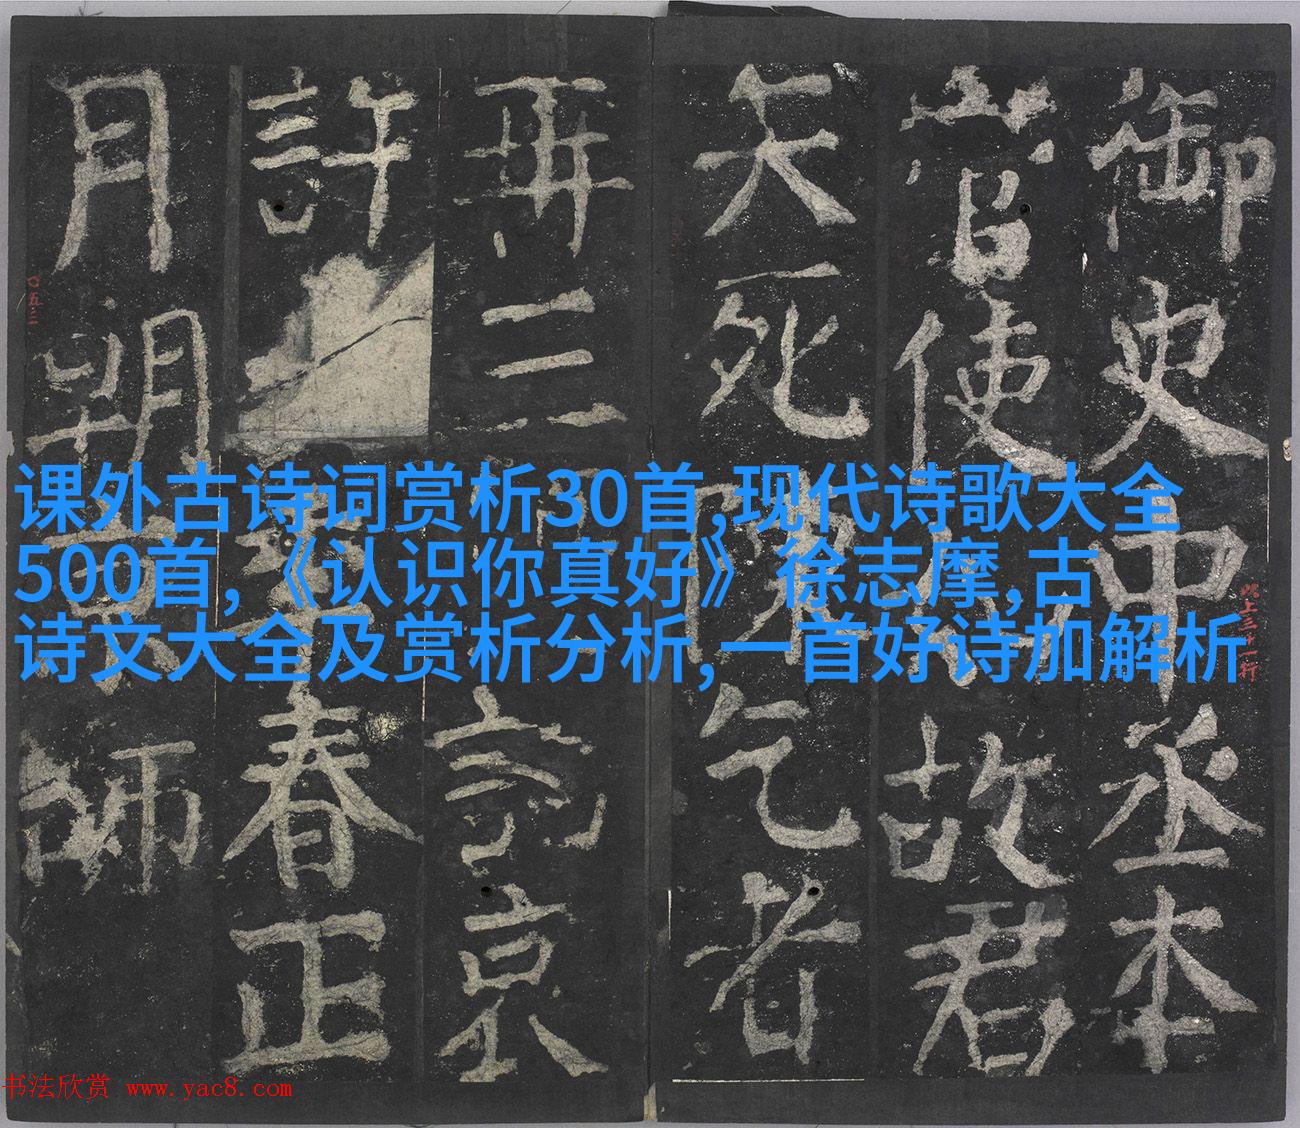 御史中丞本
使故君
矢死乞者
再三京
許春正
月朔京師
课外古诗词赏析30首,现代诗歌大全
500首,《认识你真好》徐志摩,古
诗文大全及赏析分析,一首好诗加解析
〇五三
以上三十一行
书法欣赏 www.yac8.com